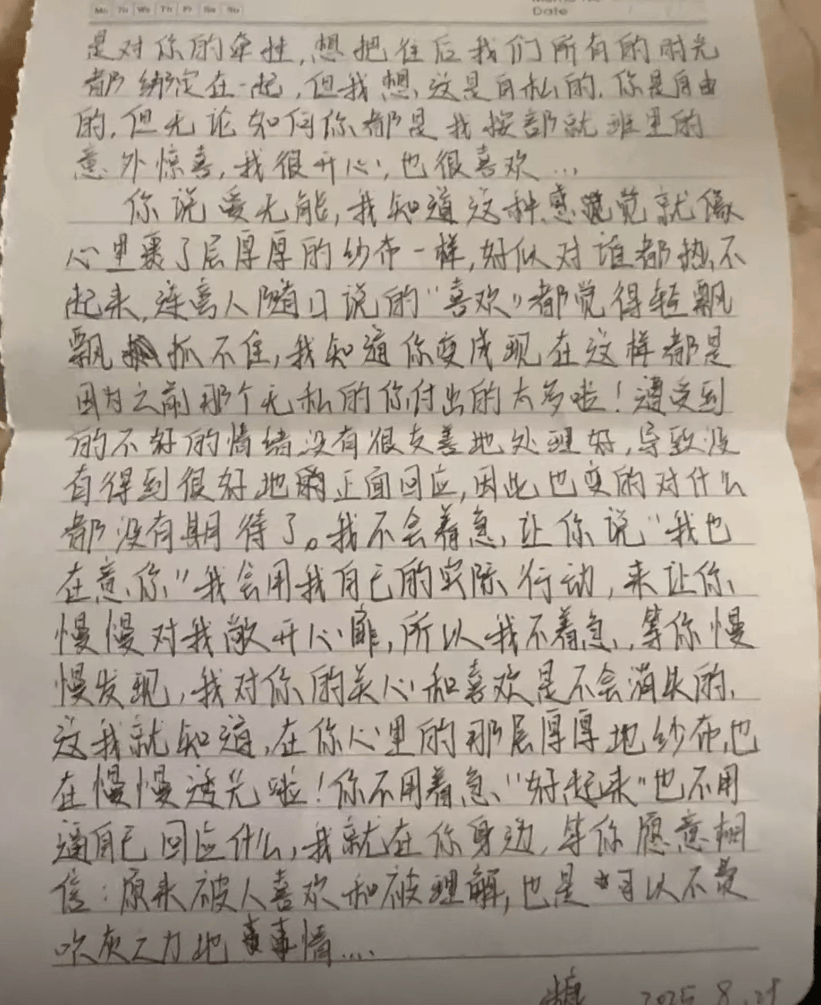 Mo Tu We Th Fr Sa Su
Date
是对你的牵挂,想把往后我们所有的时光
都绑定在一起,但我想,这是自私的,你是自由
的,但无论如何你都是我按部就班里的
意外惊喜,我很开心,也很喜欢...
你说爱无能,我知道这种感觉就像
心里裹了层厚厚的纱布一样,好似对谁都热不
起来,连离人随口说的“喜欢”都觉得轻飘
飘抓不住,我知道你变成现在这样都是
因为之前那个无私的你付出的太多啦!遭受到
的不好的情绪没有很友善地处理好,导致没
有得到很好地的正面回应,因此也变的对什么
都没有期待了。我不会着急,让你说“我也
在意你”我会用我自己的实际行动,来让你
慢慢对我敞开心扉,所以我不着急,等你慢
慢发现,我对你的关心和喜欢是不会消失的,
这我就知道,在你心里的那层厚厚地纱布,也
在慢慢透光啦!你不用着急“好起来”也不用
逼自己回应什么,我就在你身边,等你愿意相
信:原来被人喜欢和被理解,也是可以不费
吹灰之力地事情....
2025.8.